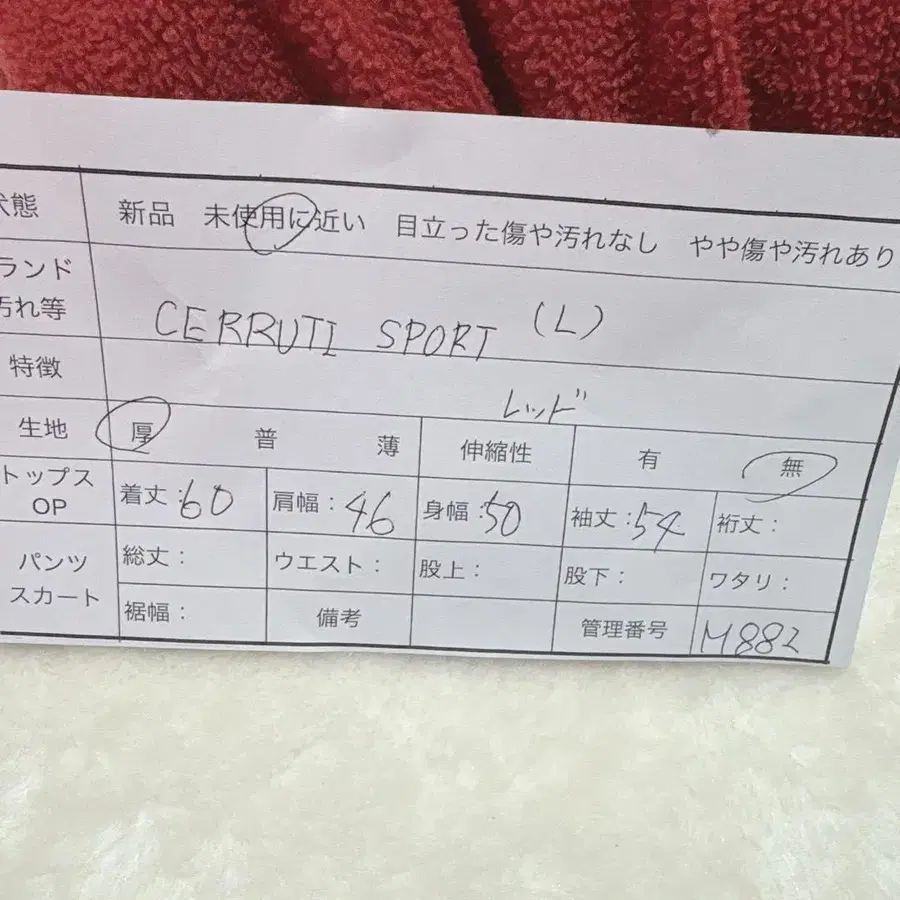 状態 新品 未使用に近い 目立った傷や汚れなし やや傷や汚れあり
ランド
汚れ等
CERRUTI SPORT (L)
特徴 レッド
生地 厚 普 薄 伸縮性 有 無
トップス
OP
着丈:60 肩幅:46 身幅:50 袖丈:54 裄丈:
パンツ
スカート
総丈: ウエスト: 股上: 股下: ワタリ:
裾幅: 備考 管理番号 M882